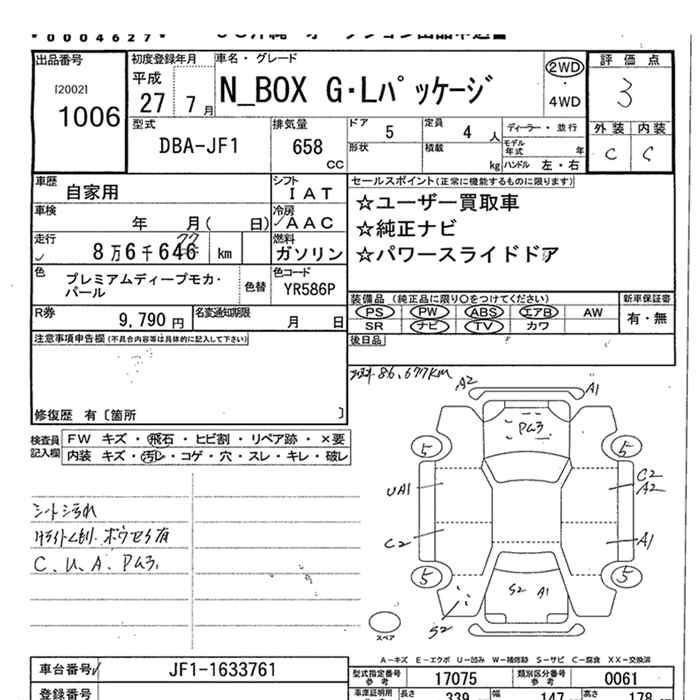 * 0 0 0 4 6 2 7 *
出品番号
[2002]
1006
初度登録年月
平成
27年7月
車名・グレード
N_BOX G・Lパッケージ
2WD
・
4WD
評価点
3
外装 内装
C C
型式
DBA-JF1
排気量
658
CC
ドア 5
定員 4 人
ディーラー・並行
形状
積載 kg
モデル年式 年
ハンドル 左・右
車歴
自家用
シフト
I A T
車検
年 月( 日)
冷房
A A C
走行
8万6千646 km
77
燃料
ガソリン
色
プレミアムディープモカ・
パール
色替
色コード
YR586P
R券
9,790 円
名変通知期限
月 日
セールスポイント(正常に機能するものに限ります)
☆ユーザー買取車
☆純正ナビ
☆パワースライドドア
装備品 (純正品に限り○をつけてください)
新車保証書
PS PW ABS エアB AW
SR ナビ TV カワ
有・無
後日品
注意事項申告欄(不具合内容等は具体的に記入して下さい)
修復歴 有〔箇所 〕
86,677KM
検査員
記入欄
FW キズ・飛石・ヒビ割・リペア跡・×要
内装 キズ・汚レ・コゲ・穴・スレ・キレ・破レ
シート汚れ
C、U、A、Pム3
A2
A1
Pム3
5
5
UA1
C2
A2
C2
A1
5
5
S2
A1
S2
スペア
A-キズ E-エクボ U-凹み W-補修跡 S-サビ C-腐食 XX-交換済
車台番号
JF1-1633761
型式指定番号
参考
17075
類別区分番号
参考
0061
登録番号
車庫証明用
長さ
339
幅
147
高さ
178